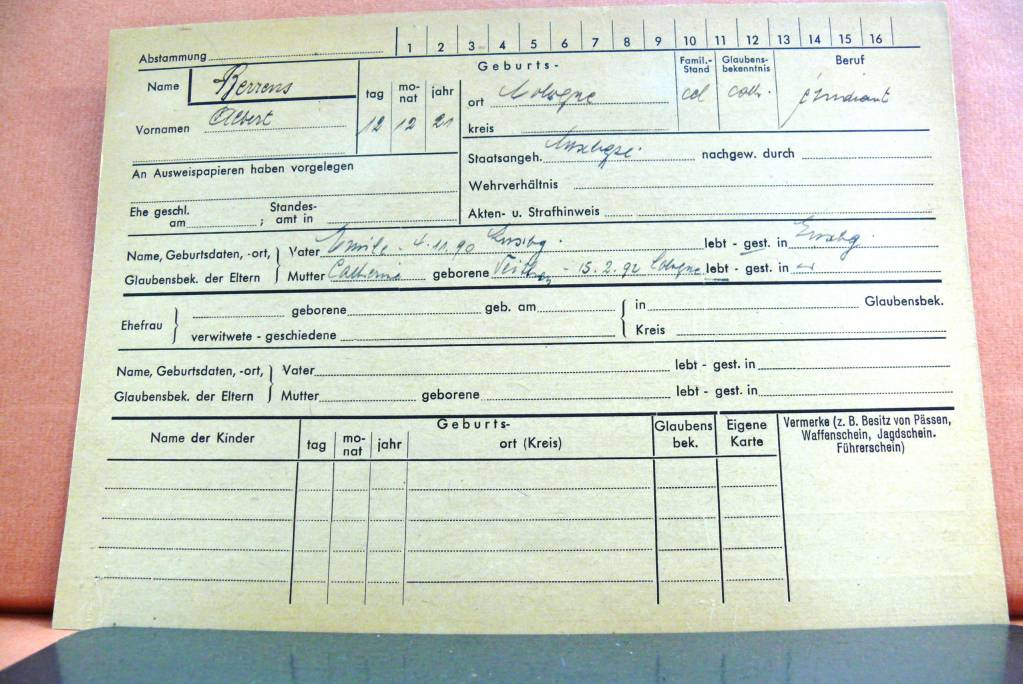 Abstammung 1 2 3 4 5 6 7 8 9 10 11 12 13 14 15 16
Geburts- Famil.-Stand Glaubens-bekenntnis Beruf
Name Berrens tag mo-nat jahr ort Cologne cel cath. étudiant
Vornamen Albert 12 12 21 kreis
Staatsangeh. nachgew. durch
An Ausweispapieren haben vorgelegen
Wehrverhältnis
Ehe geschl. am ; Standes-amt in
Akten- u. Strafhinweis
Name, Geburtsdaten, -ort, Vater Emile - 4.11.90 Luxbg. lebt - gest. in Luxbg.
Glaubensbek. der Eltern Mutter Catherine geborene - 15.2.92 Cologne lebt - gest. in
geborene geb. am in Glaubensbek.
Ehefrau
verwitwete - geschiedene Kreis
Name, Geburtsdaten, -ort, Vater lebt - gest. in
Glaubensbek. der Eltern Mutter geborene lebt - gest. in
Name der Kinder Geburts- Glaubens bek. Eigene Karte Vermerke (z. B. Besitz von Pässen, Waffenschein, Jagdschein. Führerschein)
tag mo-nat jahr ort (Kreis)